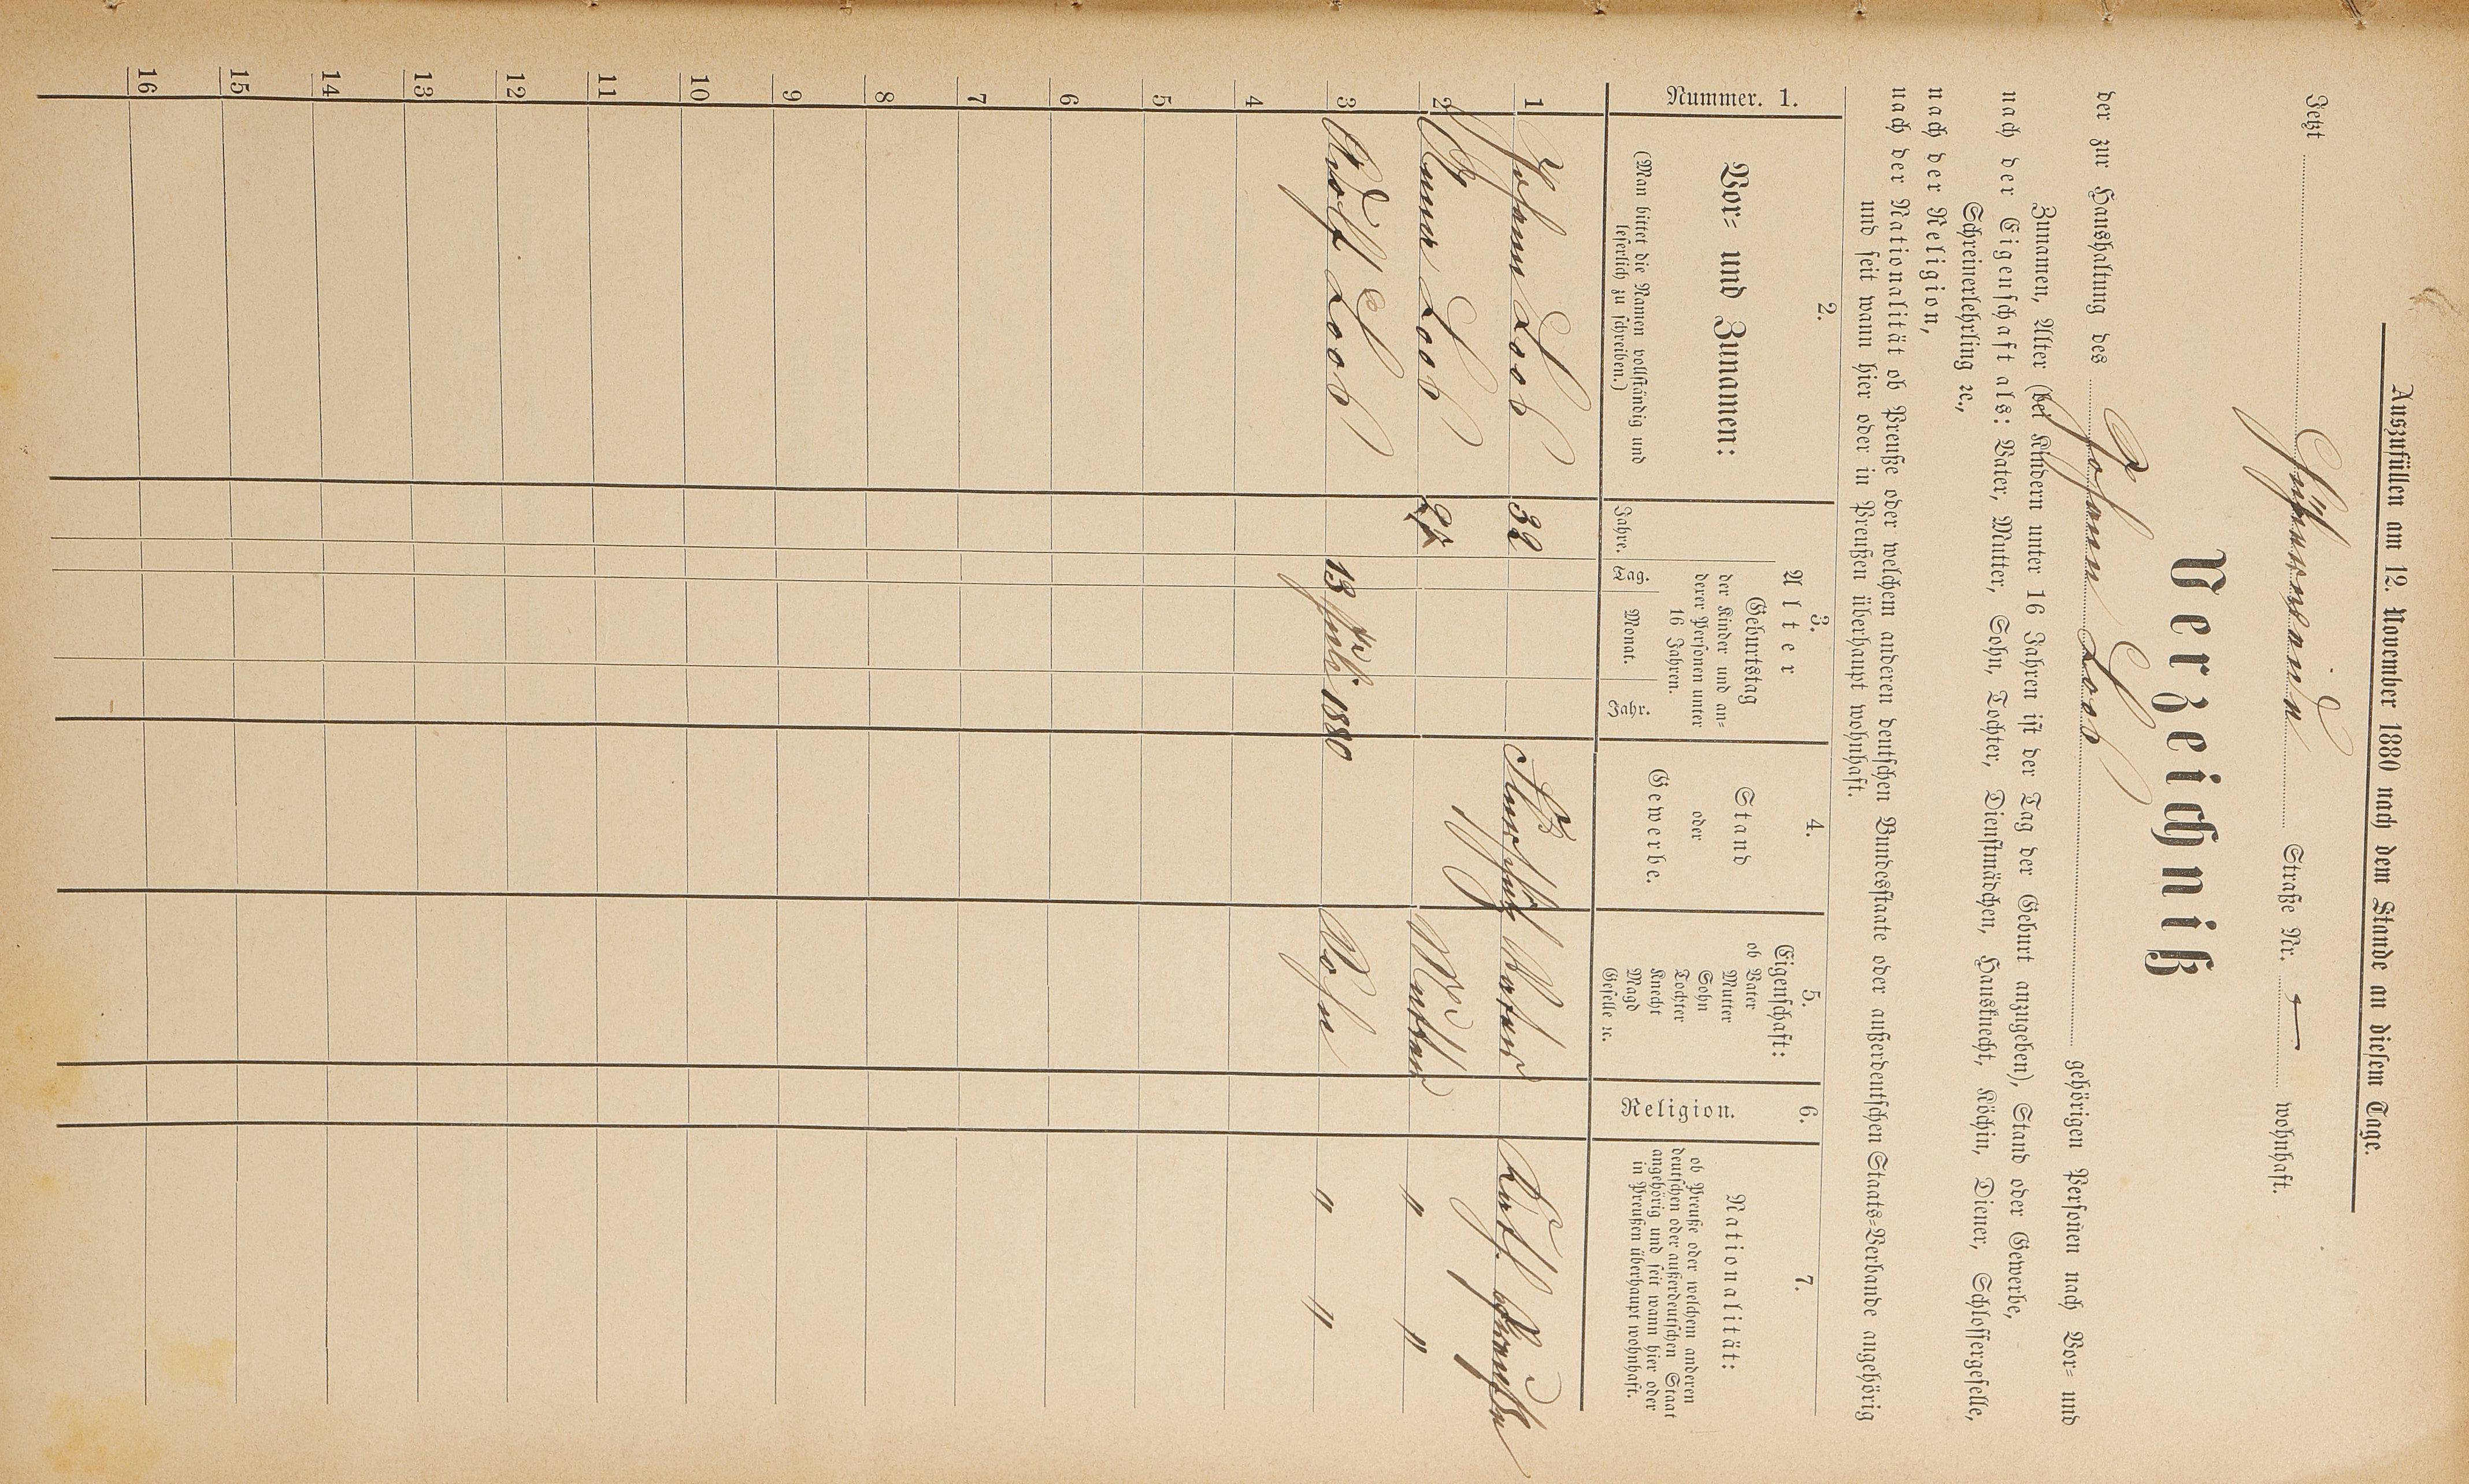 Auszufüllen am 12. November 1880 nach dem Stande an diesem Tage.
Jetzt Straße Nr. wohnhaft.
Verzeichniß
der zur Haushaltung des Johann Loos gehörigen Personen nach Vor- und
Zunamen, Alter (bei Kindern unter 16 Jahren ist der Tag der Geburt anzugeben), Stand oder Gewerbe,
nach der Eigenschaft als: Vater, Mutter, Sohn, Tochter, Dienstmädchen, Hausknecht, Köchin, Diener, Schlossergeselle,
Schreinerlehrling ꝛc.,
nach der Religion,
nach der Nationalität ob Preuße oder welchem anderen deutschen Bundesstaate oder außerdeutschen Staats-Verbande angehörig
und seit wann hier oder in Preußen überhaupt wohnhaft.
Nummer. 1.
2.
Vor- und Zunamen:
(Man bittet die Namen vollständig und
leserlich zu schreiben.)
3.
Alter
Jahre.
Geburtstag
der Kinder und an-
derer Personen unter
16 Jahren.
Tag. Monat. Jahr.
4.
Stand
oder
Gewerbe.
5.
Eigenschaft:
ob Vater
Mutter
Sohn
Tochter
Knecht
Magd
Geselle ꝛc.
6.
Religion.
7.
Nationalität:
ob Preuße oder welchem anderen
deutschen oder außerdeutschen Staat
angehörig und seit wann hier oder
in Preußen überhaupt wohnhaft.
1 Johann Loos 32 Vater Kath. Preuße
2 Anna Loos Mutter " "
3 Adolf Loos 13 Juli 1880 Sohn " "
4
5
6
7
8
9
10
11
12
13
14
15
16